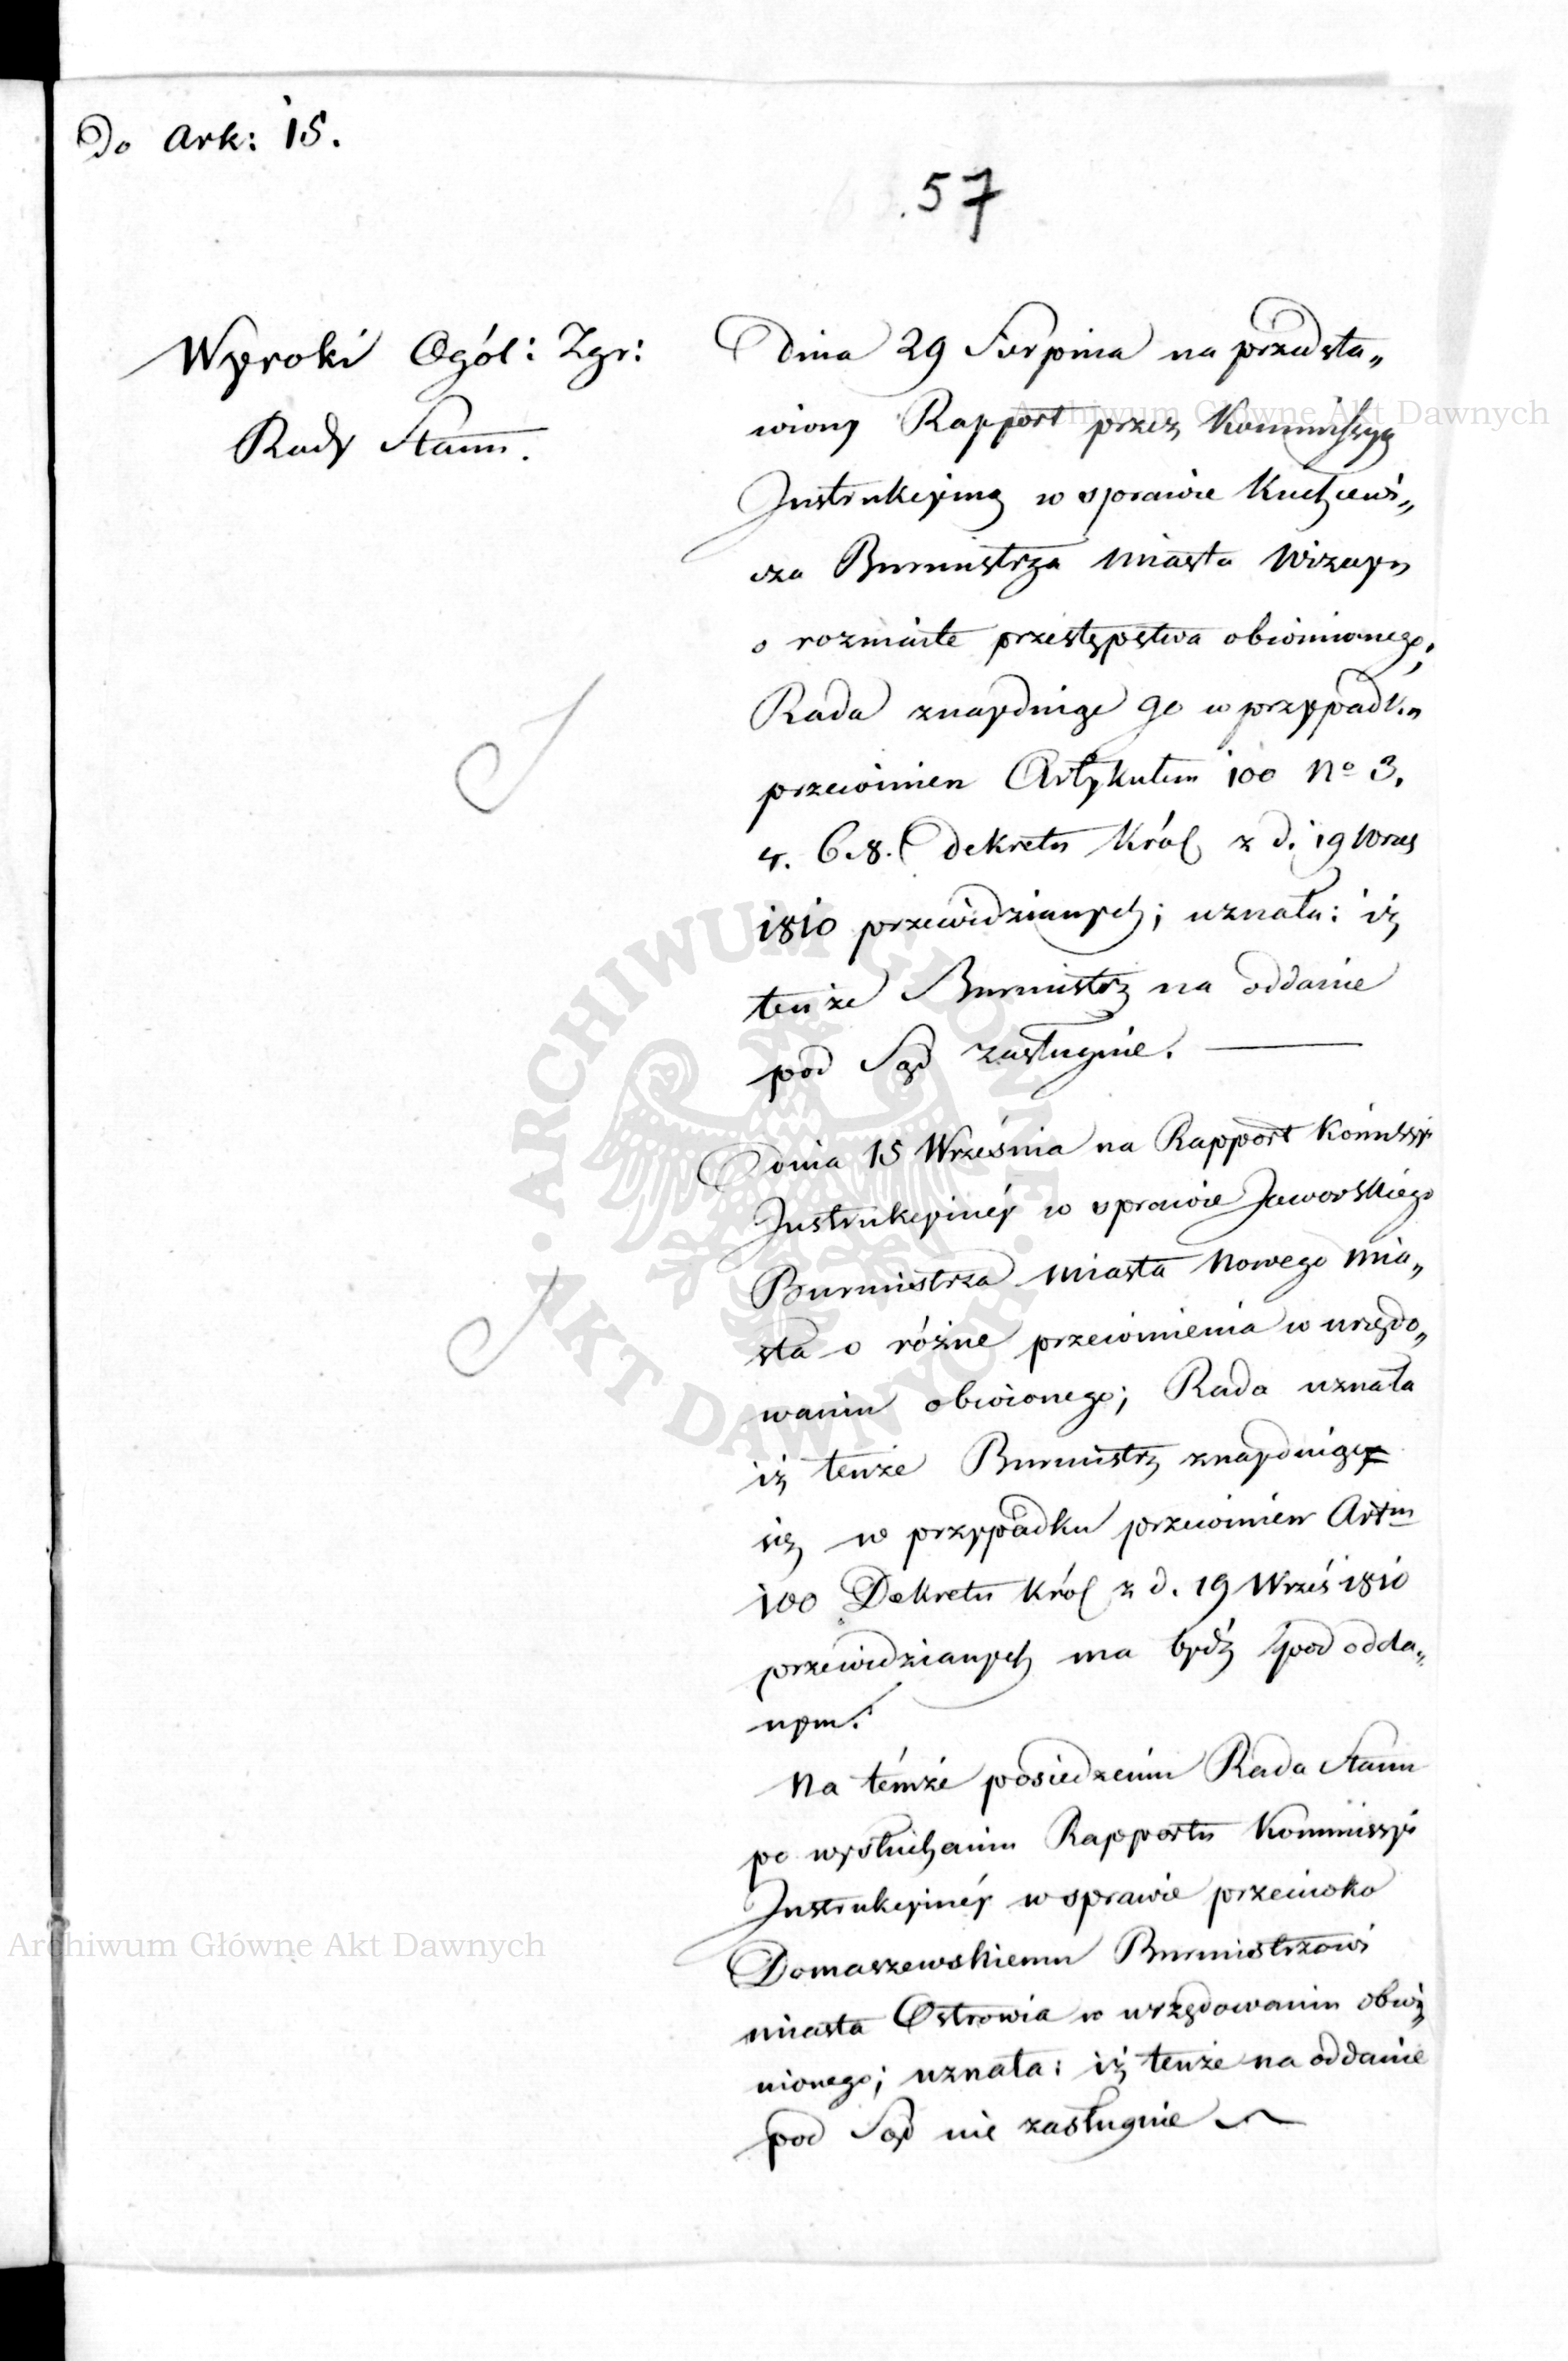 Do Ark: 15.
57
Wyroki Ogól: Zgr:
Rady Stanu.
Dnia 29 Sierpnia na przedsta„
wiony Rapport przez Kommissyą
Instrukcyiną w sprawie Kuchcewi„
cza Burmistrza miasta Wizayn
o rozmaite przestępstwa obwinionego;
Rada znayduiąc go w przypadku
przewinien Artykułem 100 No 3.
4. 6. 8. Dekretu Król z d. 19 Wrześ
1810 przewidzianych; uznała: iż
tenże Burmistrz na oddanie
pod Sąd zasługuie.
Dnia 15 Września na Rapport Komissyi
Instrukcyinéy w sprawie Jaworskiego
Burmistrza miasta Nowego mia„
sta o różne przewinienia w urzędo„
waniu obwionego; Rada uznała
iż tenże Burmistrz znayduiący
się w przypadku przewinien Artm
100 Dekretu Król z d. 19 Wrześ 1810
przewidzianych ma bydź pod odda„
nym.
Na témże posiedzeniu Rada Stanu
po wysłuchaniu Rapportu Kommissyi
Instrukcyinéy w sprawie przeciwko
Domaszewskiemu Burmistrzowi
miasta Ostrowia w urzędowaniu obwi„
nionego; uznała: iż tenże na oddanie
pod Sąd nie zasługuie
Archiwum Główne Akt Dawnych
Archiwum Główne Akt Dawnych
ARCHIWUM GŁÓWNE · AKT DAWNYCH ·